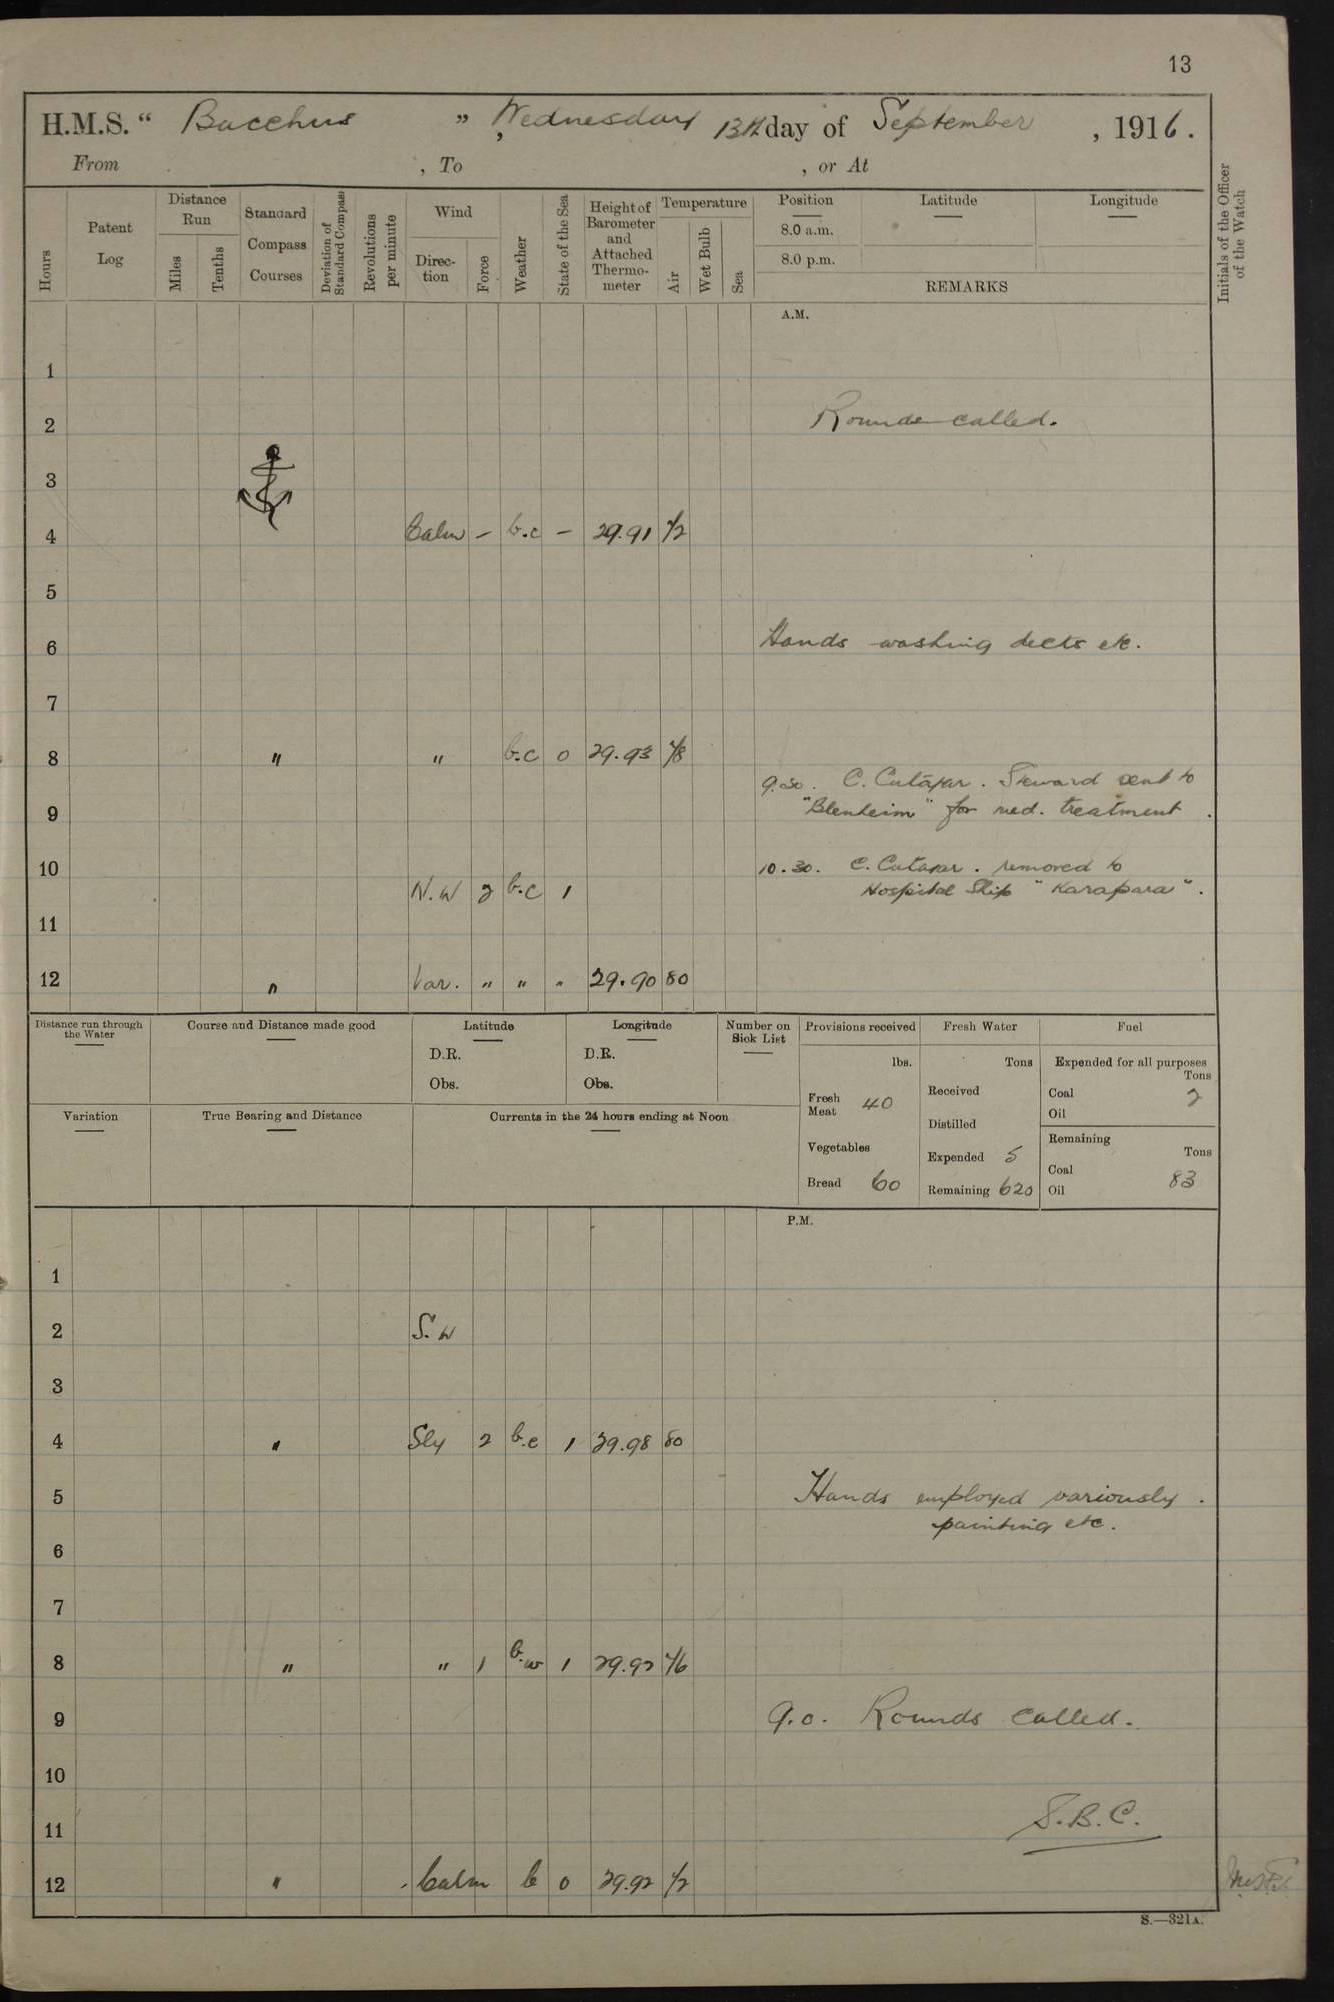 13
H.M.S. “ Bacchus ”, Wednesday 13th day of September , 1916.
From , To , or At
Hours
Patent Log
Distance Run
Miles
Tenths
Standard Compass Courses
Deviation of Standard Compass
Revolutions per minute
Wind
Direction
Force
Weather
State of the Sea
Height of Barometer and Attached Thermometer
Temperature
Air
Wet Bulb
Sea
Position
8.0 a.m.
8.0 p.m.
Latitude
Longitude
REMARKS
Initials of the Officer of the Watch
A.M.
1
2 Rounds called.
3
4 Calm – b.c – 29.91 72
5
6 Hands washing decks etc.
7
8 " " b.c 0 29.93 78
9.30. C. Cutajar. Steward sent to
9 "Blenheim" for med. treatment.
10 10.30. C. Cutajar. removed to
N.W 2 b.c 1 Hospital Ship "Karapara".
11
12 " Var. " " " 29.90 80
Distance run through the Water
Course and Distance made good
Latitude
D.R.
Obs.
Longitude
D.R.
Obs.
Number on Sick List
Provisions received
lbs.
Fresh Meat 40
Vegetables
Bread 60
Fresh Water
Tons
Received
Distilled
Expended 5
Remaining 620
Fuel
Expended for all purposes
Tons
Coal 2
Oil
Remaining
Tons
Coal 83
Oil
Variation
True Bearing and Distance
Currents in the 24 hours ending at Noon
P.M.
1
2 S.W
3
4 " Sly 2 b.c 1 29.98 80
5 Hands employed variously.
painting etc.
6
7
8 " " 1 b.w 1 29.92 76
9 9.0. Rounds called.
10
11 S.B.C.
12 " Calm b 0 29.92 72
S.—321A.